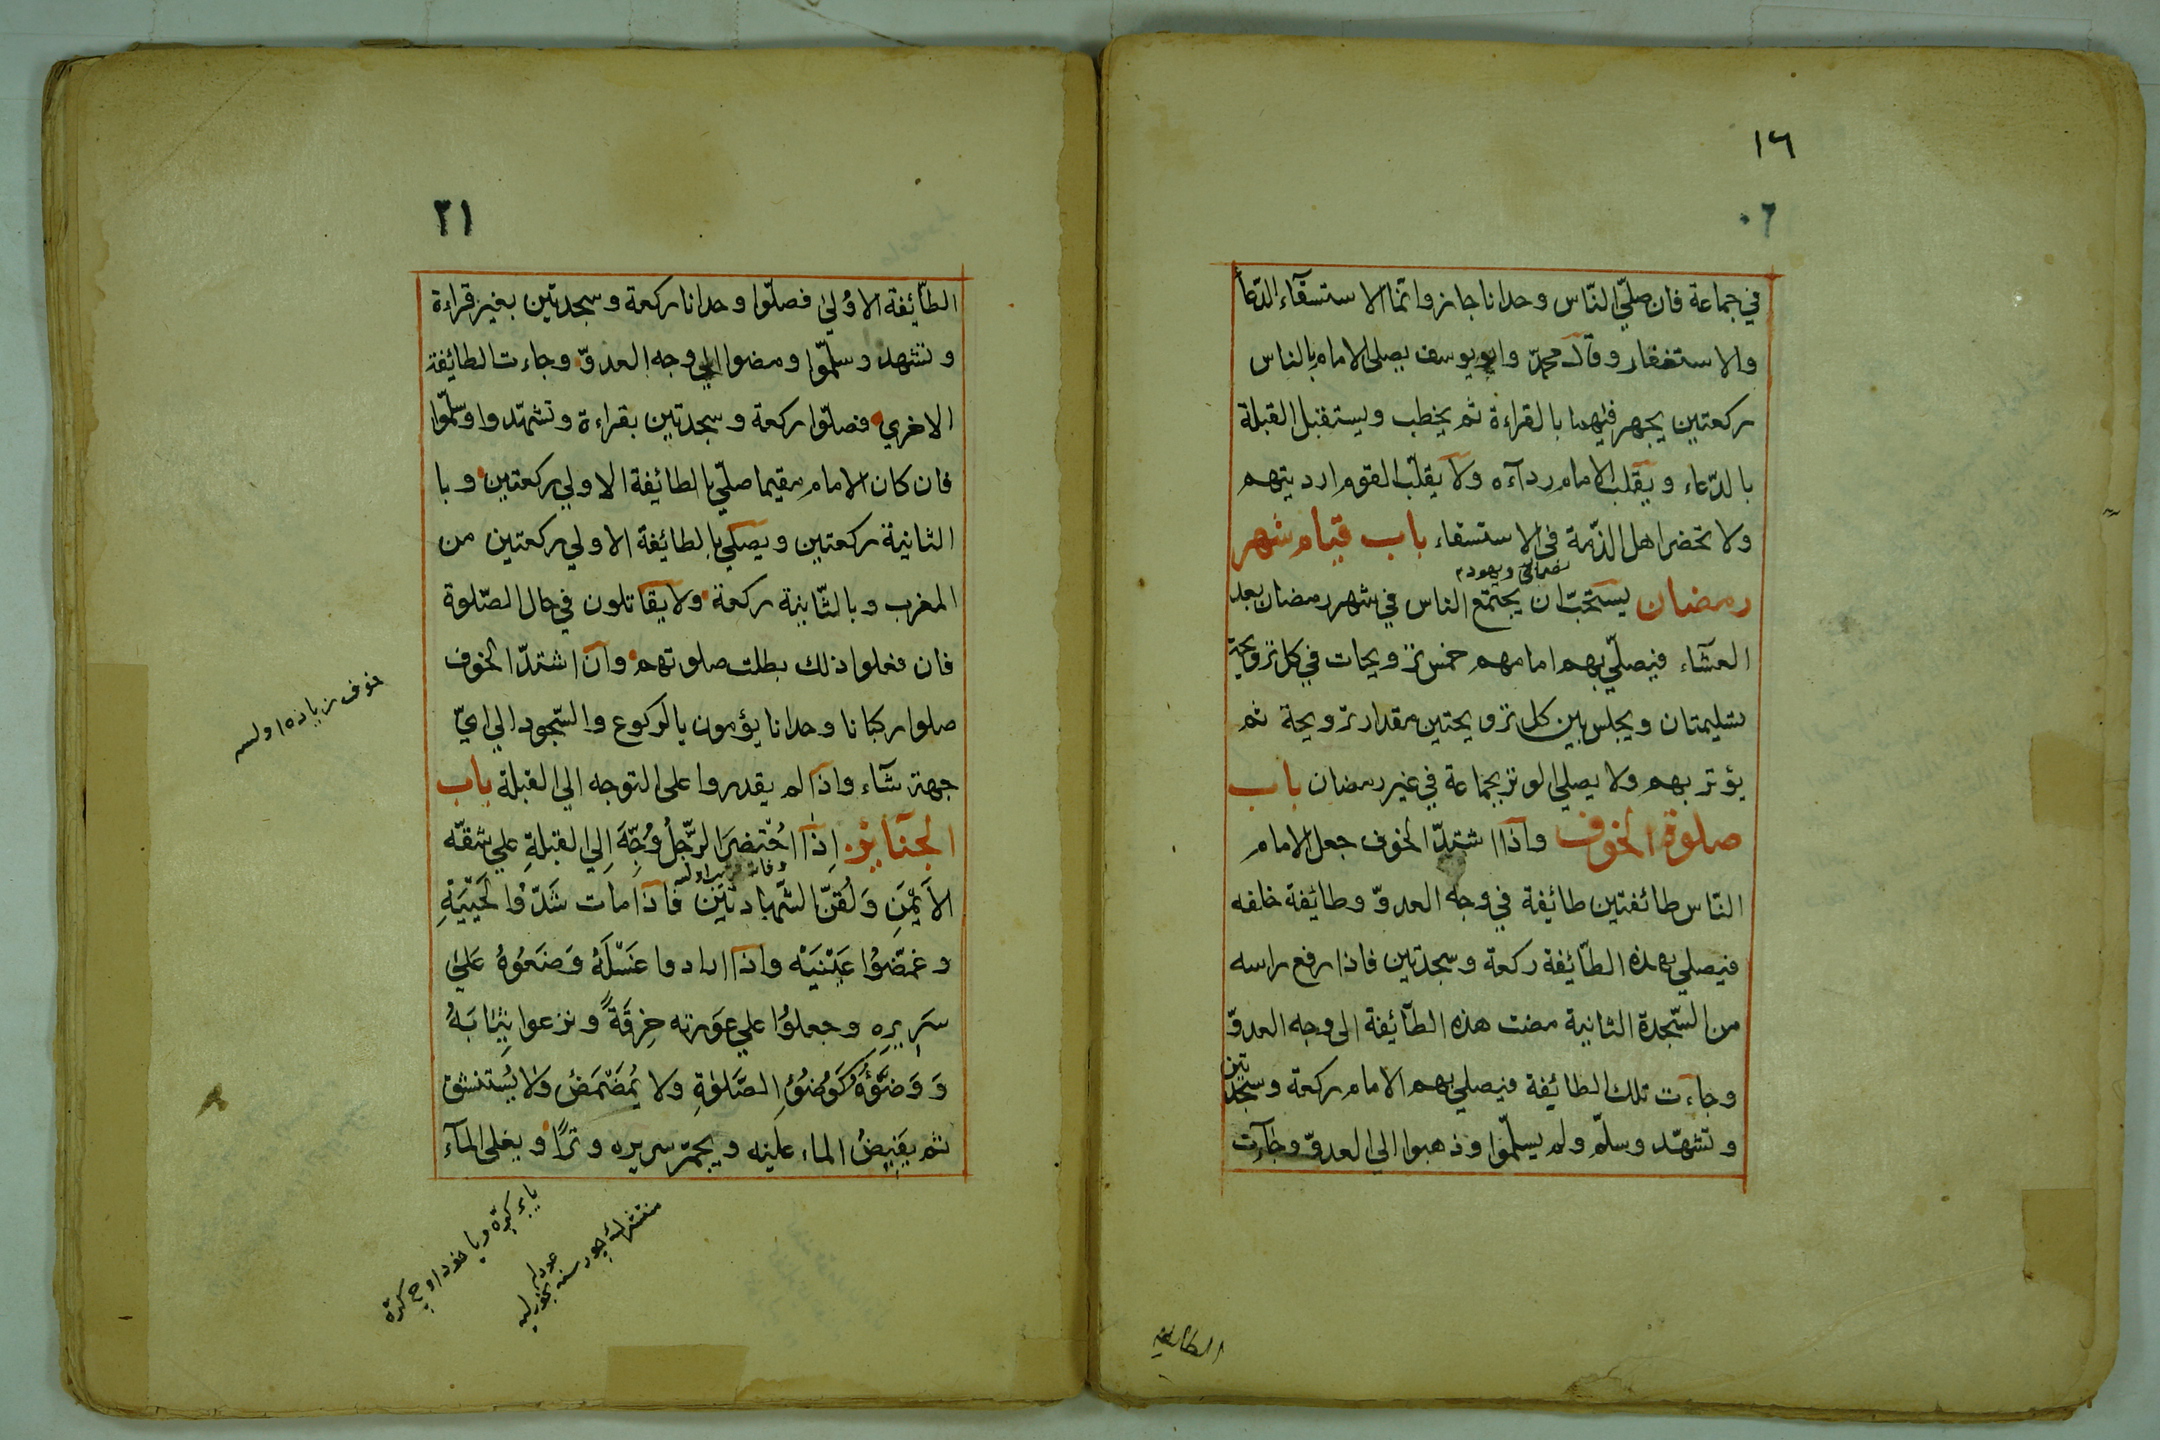 ١٦
٠٢
في جماعة فان صلّي النّاس وحدانا جاز وانّما الاستسقآء الدّعا
والاستغفار وقال محمّد وابو يوسف يصلى الامام بالناس
ركعتين يجهر فيهما بالقراءة ثم يخطب ويستقبل القبلة
بالدّعاء ويقلب الامام ردآءه ولا يقلّب القوم ارديتهم
ولا تحضر اهل الذّمة في الاستسقاء باب قيام شهر
نصراني ويهودم
رمضان يستحبّ ان يجتمع الناس في شهر رمضان بعد
العشآء فيصلّي بهم امامهم خمس ترويحات في كل ترويحة
تسليمتان ويجلس بين كل ترويحتين مقدار ترويحة ثم
يؤتر بهم ولا يصلي الوتر بجماعة في غير رمضان باب
صلوة الخوف واذا اشتدّ الخوف جعل الامام
النّاس طائفتين طائيفة في وجه العدوّ وطائيفة خلفه
فيصلي بهذه الطّائيفة ركعة وسجدتين فاذا رفع راسه
من السّجدة الثانية مضت هذه الطآئيفة الى وجه العدوّ
وجاءت تلك الطائيفة فيصلي بهم الامام ركعة وسجدتين
وتشهّد وسلّم ولم يسلّموا وذهبوا الى العدوّ وجآءت
الطائفة
٢١
الطّائيفة الاوُلي فصلّوا وحدانا ركعة وسجدتين بغير قراءة
وتشهد وسلّموا ومضوا الي وجه العدوّ وجاءت الطائيفة
الاخري فصلّوا ركعة وسجدتين بقراءة وتشهّدوا وسلّموا
فان كان الامام مقيما صلّي بالطائيفة الاولي ركعتين وبا
الثانية ركعتين ويصلّي بالطائيفة الاولي ركعتين من
المغرب وبالثّانية ركعة ولا يقاتلون في حال الصّلوة
فان فعلوا ذلك بطلت صلوتهم وان اشتدّ الخوف
خوف زياده اولسه
صلوا ركبانا وحدانا يؤمون بالركوع والسّجود الي ايّ
جهة شآء واذا لم يقدروا على التوجه الي القبلة باب
الجنائز اِذا احْتضرَ الرّجلُ وُجِّهَ اِلي القبلةِ علي شقّه
الاَيْمَنِ وَلُقنّ الشّهادتين فاذا مات شَدّوا لَحْيَيْهِ
وغمّضوُا عَيْنَيْه واذا ارادوا غَسْلَهُ وَضَعُوهُ عَلىٰ
سَرِيرِه وجعلوُا علي عَورته خِرقَةً ونزعوا ثِيٰابَهُ
وَوَضّؤُهُ كَوُضوُءِ الصَّلٰوةِ ولا يُمَضْمَضُ ولا يُستنشق
ثم يَفيِضُ الماء علَيْه ويجمّر سريره وترًا ويغلى المآء